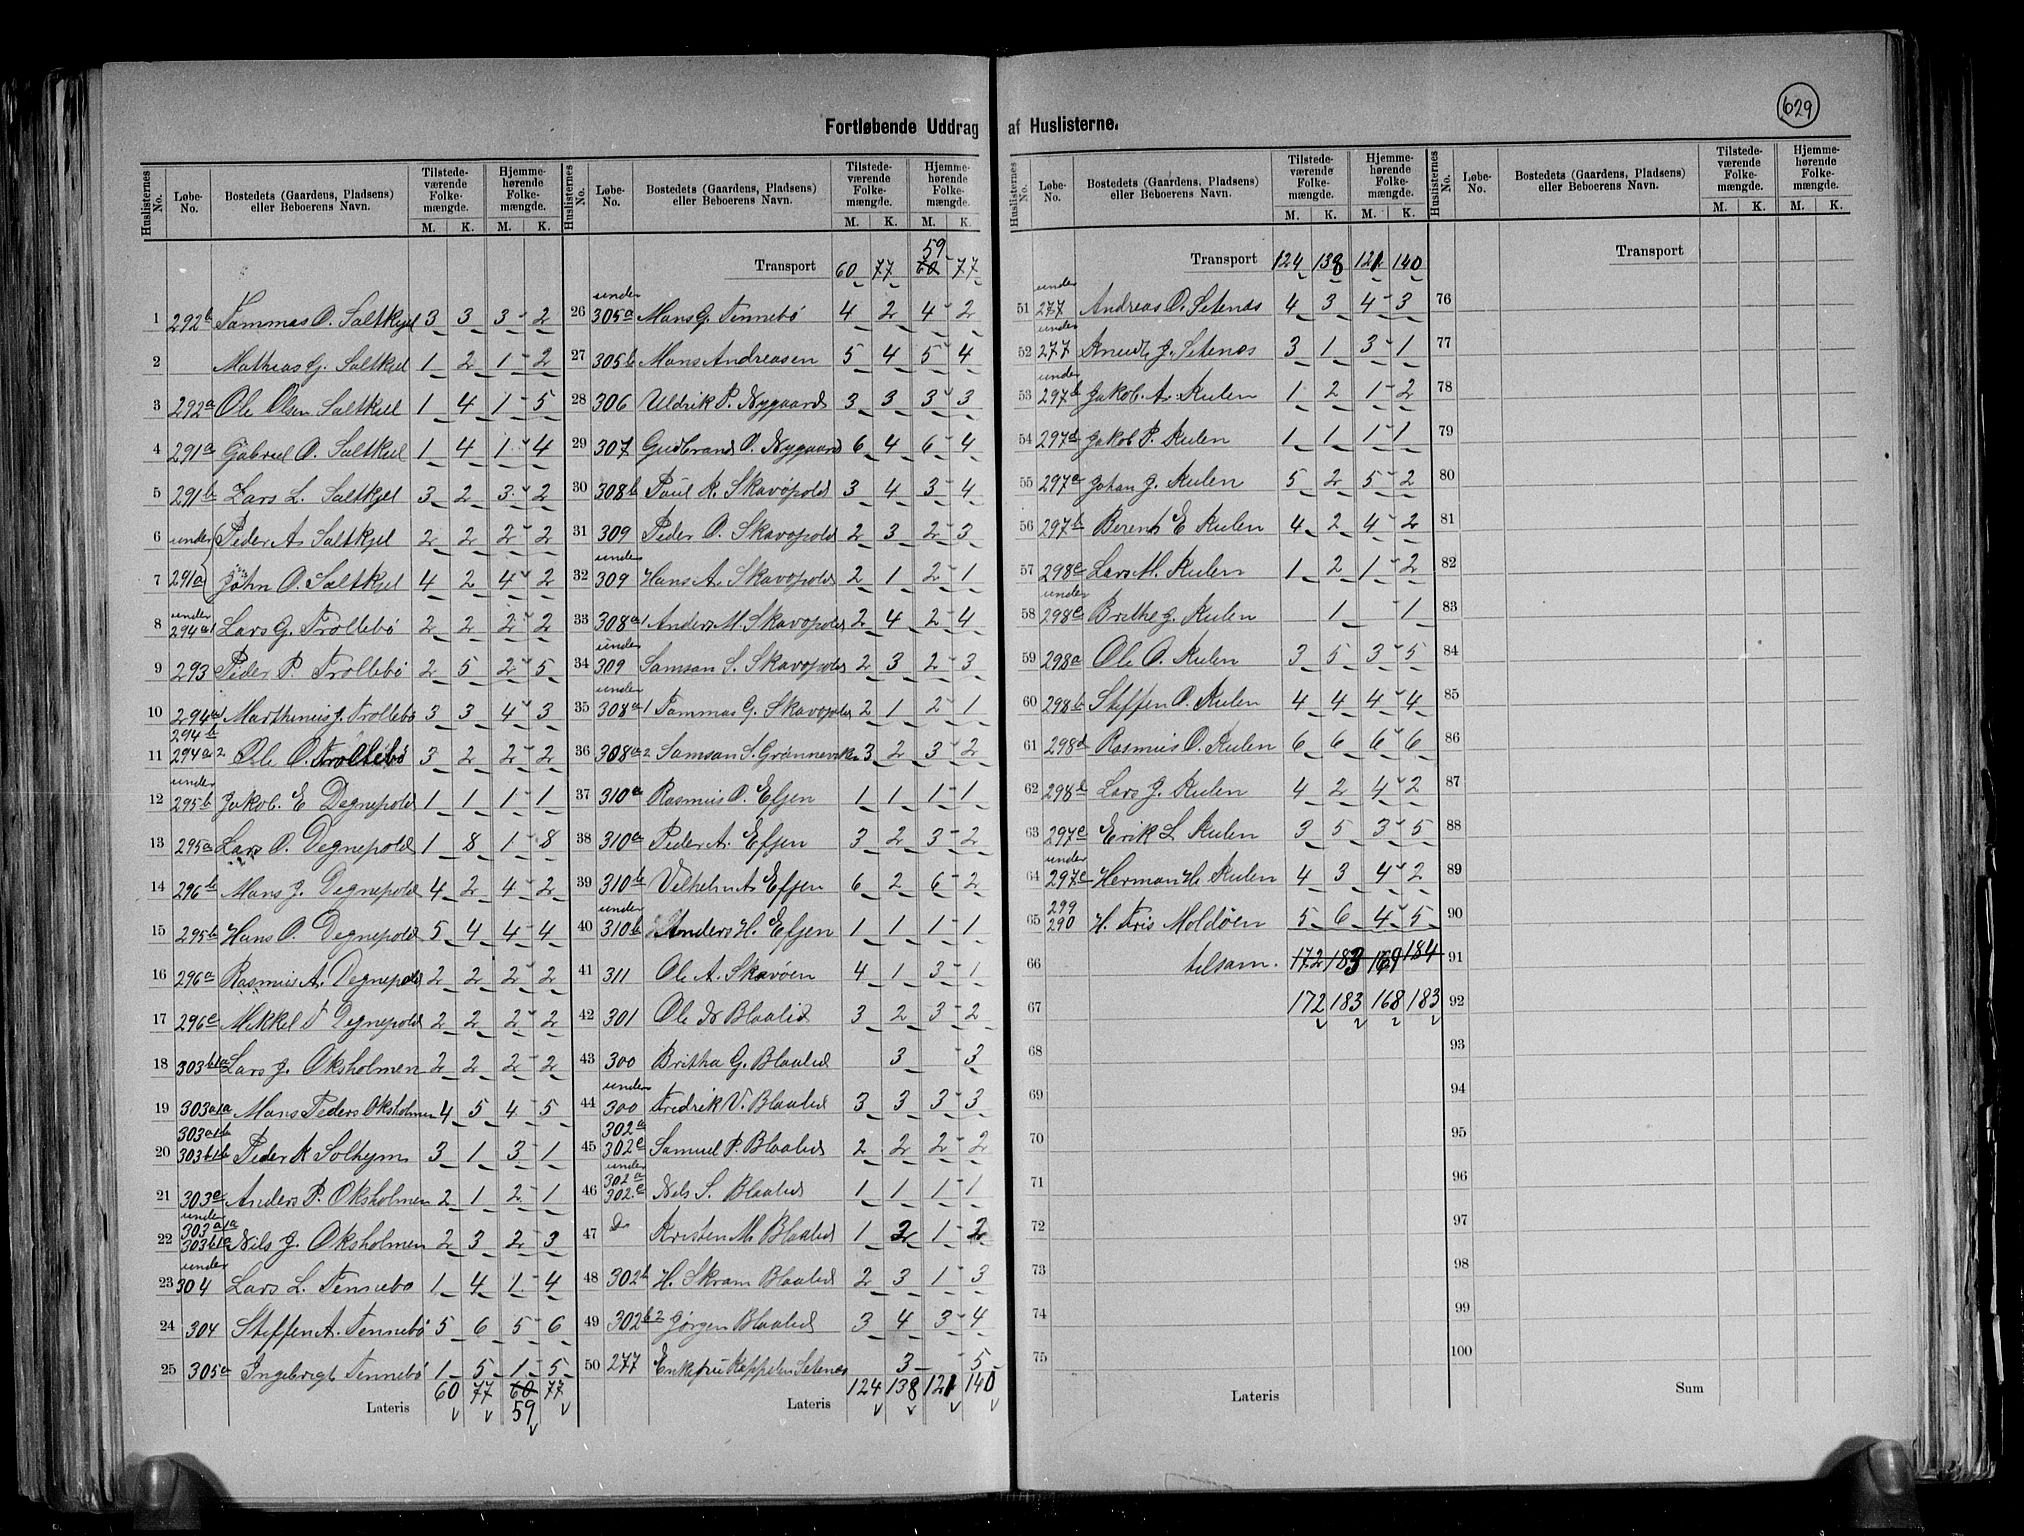 629
Fortløbende Uddrag af Huslisterne.
Huslisternes No. Løbe-No. Bostedets (Gaardens, Pladsens) eller Beboerens Navn. Tilstede-værende Folke-mængde. M. K. Hjemme-hørende Folke-mængde. M. K.
1 292b Tammas O. Saltkjel 3 3 3 2
2 Mathias G. Saltkjel 1 2 1 2
3 292a Ole Olsen Saltkjel 1 4 1 5
4 291a Gabriel O. Saltkjel 1 4 1 4
5 291b Lars L. Saltkjel 3 2 3 2
6 under Peder A. Saltkjel 2 2 2 2
7 291a John O. Saltkjel 4 2 4 2
8 under 294a1 Lars G. Trollebö 2 2 2 2
9 293 Peder P. Trollebö 2 5 2 5
10 294a1 Marthinus J. Trollebö 3 3 4 3
11 294b 294a2 Ole O. Trollebö 3 2 2 2
12 under 295b Jakob E Degnepold 1 1 1 1
13 295a Lars O. Degnepold 1 8 1 8
14 296b Mons J. Degnepold 4 2 4 2
15 295b Hans O. Degnepold 5 4 4 4
16 296a Rasmus A. Degnepold 2 2 2 2
17 296c Mikkel T Degnepold 2 2 2 2
18 303b1a Lars J. Oksholmen 2 2 2 2
19 303a1a Mons Peders Oksholmen 4 5 4 5
20 303a1b 303b1b Peder K Solheim 3 1 3 1
21 303c Anders P. Oksholmen 2 1 2 1
22 under 303a1a 303b1a Nils J. Oksholmen 2 3 2 3
23 under 304 Lars L. Tennebö 1 4 1 4
24 304 Steffen A. Tennebö 5 6 5 6
25 305a Ingebrigt Tennebö 1 5 1 5
Lateris 60 77 60 77
59
Huslisternes No. Løbe-No. Bostedets (Gaardens, Pladsens) eller Beboerens Navn. Tilstede-værende Folke-mængde. M. K. Hjemme-hørende Folke-mængde. M. K.
59
Transport 60 77 60 77
26 under 305a Mons G. Tennebö 4 2 4 2
27 305b Mons Andreasen 5 4 5 4
28 306 Uldrik P. Nygaard 3 3 3 3
29 307 Gudbrand O. Nygaard 6 4 6 4
30 308b Paul R. Skavöpold 3 4 3 4
31 309 Peder O. Skavöpold 2 3 2 3
32 under 309 Hans A. Skavöpold 2 1 2 1
33 308a1 Anders M. Skavöpold 2 4 2 4
34 under 309 Samson S. Skavöpold 2 3 2 3
35 under 308a1 Tammas G. Skavöpold 2 1 2 1
36 308a2 Samson S. Grönneviken 3 2 3 2
37 310a Rasmus O. Efjen 1 1 1 1
38 310a Peder A. Efjen 3 2 3 2
39 310b Vilhelm A. Efjen 6 2 6 2
40 under 310b Anders H. Efjen 1 1 1 1
41 311 Ole A. Skavöen 4 1 3 1
42 301 Ole N Blaalid 3 2 3 2
43 300 Britha G. Blaalid 3 3
44 under 300 Fredrik V. Blaalid 3 3 3 3
45 302a 302c Samuel P. Blaalid 2 2 2 2
46 under 302a 302c Nils S. Blaalid 1 1 1 1
47 do Kristen M. Blaalid 1 2 1 2
48 302b H. Skram Blaalid 2 3 1 3
49 302b2 Jörgen Blaalid 3 4 3 4
50 277 Enkefru Kappelen Setenæs 3 5
Lateris 124 138 121 140
Huslisternes No. Løbe-No. Bostedets (Gaardens, Pladsens) eller Beboerens Navn. Tilstede-værende Folke-mængde. M. K. Hjemme-hørende Folke-mængde. M. K.
Transport 124 138 121 140
51 under 277 Andreas O. Setenæs 4 3 4 3
52 under 277 Knud J. Setenæs 3 1 3 1
53 under 297b Jakob A. Rulen 1 2 1 2
54 297d Jakob P. Rulen 1 1 1 1
55 297a Johan J. Rulen 5 2 5 2
56 297b Berent E Rulen 4 2 4 2
57 298c Lars M. Rulen 1 2 1 2
58 under 298c Brithe J. Rulen 1 1
59 298a Ole O. Rulen 3 5 3 5
60 298b Steffen O. Rulen 4 4 4 4
61 298d Rasmus O. Rulen 6 6 6 6
62 298d Lars J. Rulen 4 2 4 2
63 297c Erik L Rulen 3 5 3 5
64 under 297c Herman H. Rulen 4 3 4 2
65 299 290 H. Friis Moldöen 5 6 4 5
66 tilsam. 172 183 169 184
67 172 183 168 183
68
69
70
71
72
73
74
75
Lateris
Huslisternes No. Løbe-No. Bostedets (Gaardens, Pladsens) eller Beboerens Navn. Tilstede-værende Folke-mængde. M. K. Hjemme-hørende Folke-mængde. M. K.
Transport
76
77
78
79
80
81
82
83
84
85
86
87
88
89
90
91
92
93
94
95
96
97
98
99
100
Sum